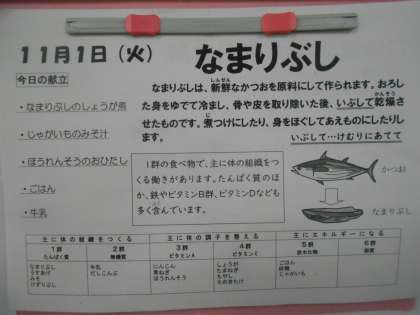 11月1日(火)
なまりぶし
今日の献立
・なまりぶしのしょうが煮
・じゃがいものみそ汁
・ほうれんそうのおひたし
・ごはん
・牛乳
なまりぶしは、新鮮なかつおを原料にして作られます。おろし
た身をゆでて冷まし、骨や皮を取り除いた後、いぶして乾燥さ
せたものです。煮つけにしたり、身をほぐしてあえものにしたりし
ます。
しんせん
かんそう
に
いぶして…けむりにあてて
1群の食べ物で、主に体の組織をつ
くる働きがあります。たんぱく質の
ほか、鉄やビタミンB群、ビタミンDなども
多く含んでいます。
かつお
なまりぶし
主に体の組織をつくる
主に体の調子を整える
主にエネルギーになる
1群
たんぱく質
2群
無機質
3群
ビタミンA
4群
ビタミンC
5群
炭水化物
6群
脂質
なまりぶし
うすあげ
みそ
けずりぶし
牛乳
だしこんぶ
にんじん
青ねぎ
ほうれんそう
しょうが
たまねぎ
もやし
ごはん
砂糖
じゃがいも